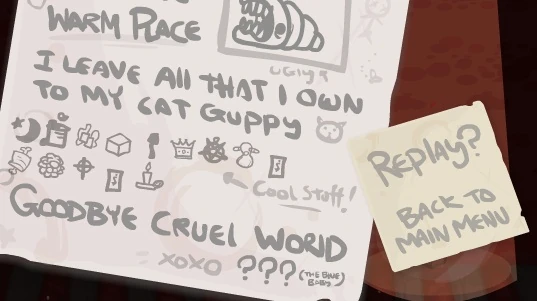 WARM PLACE
UGLY
I LEAVE All THAT I OWN
TO MY CAT GUPPY
COOL STUFF!
GOODBYE CRUEl WORlD
XOXO ??? (THE BLUE BABY)
REPLAY?
BACK TO
MAIN MENU